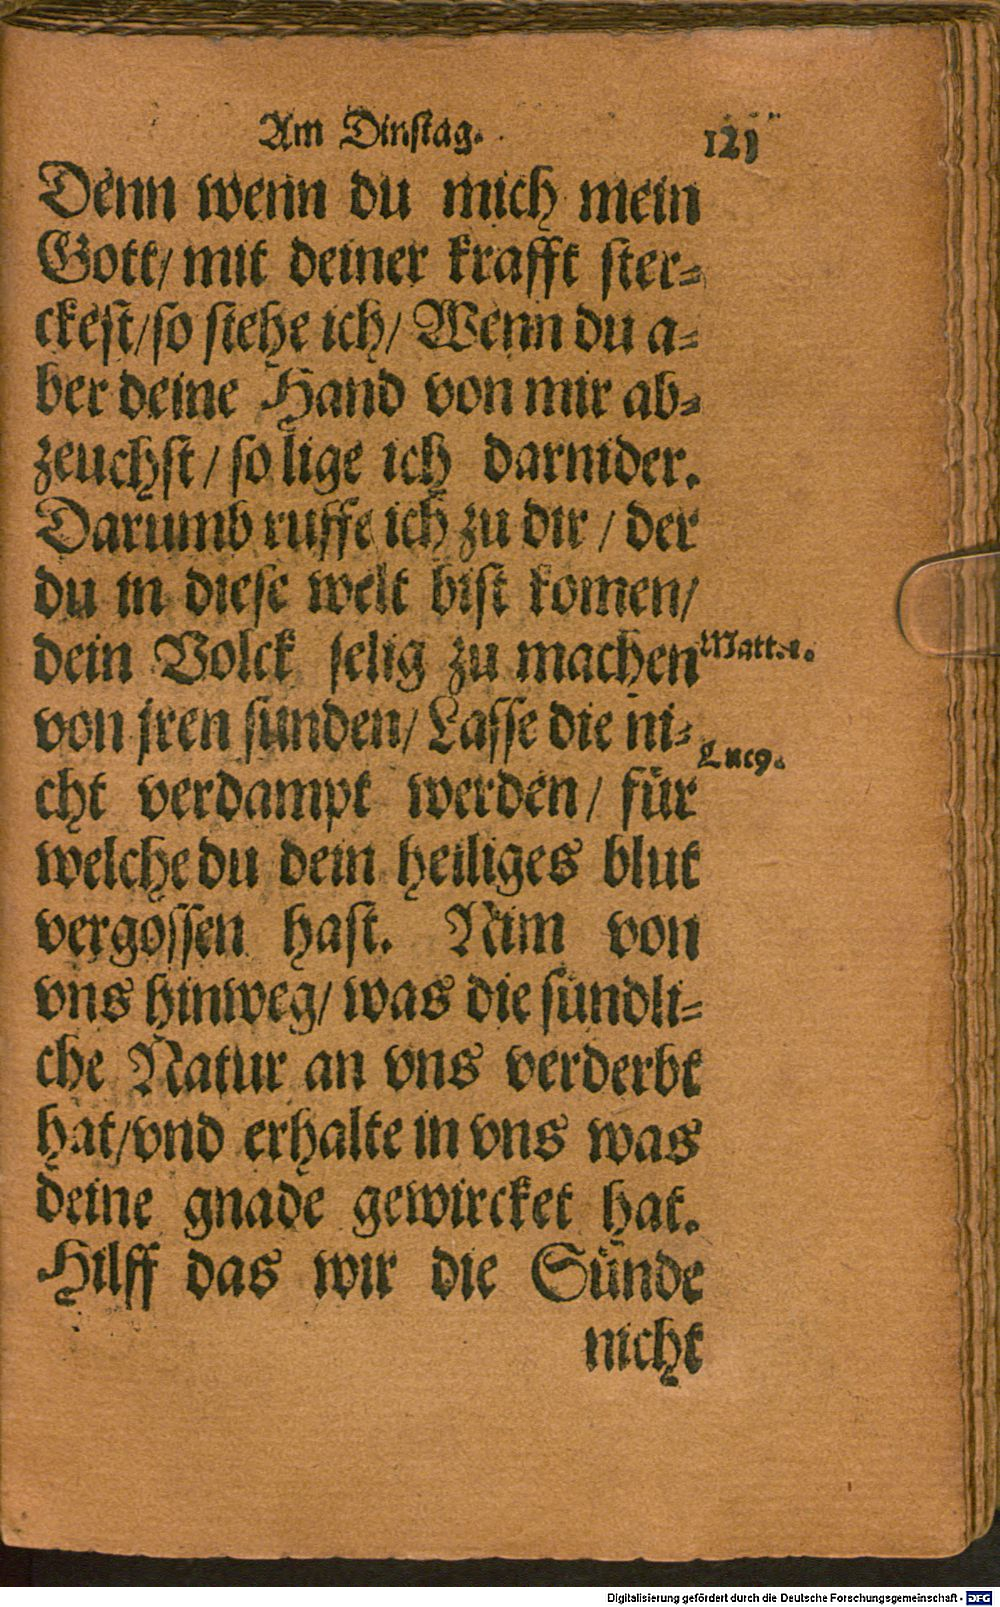 Am Dinstag. 121
Denn wenn du mich mein
Gott/ mit deiner krafft ster⸗
ckest/ so stehe ich/ Wenn du a⸗
ber deine Hand von mir ab⸗
zeuchst/ so lige ich darnider.
Darumb ruffe ich zu dir/ der
du in diese welt bist komen/
dein Volck selig zu machen Matt. 1.
von jren sünden/ Lasse die ni⸗
Luc 9.
cht verdampt werden/ für
welche du dein heiliges blut
vergossen hast. Nim von
vns hinweg/ was die sündli⸗
che Natur an vns verderbt
hat/ vnd erhalte in vns was
deine gnade gewircket hat.
Hilff das wir die Sünde
nicht
Digitalisierung gefördert durch die Deutsche Forschungsgemeinschaft - DFG